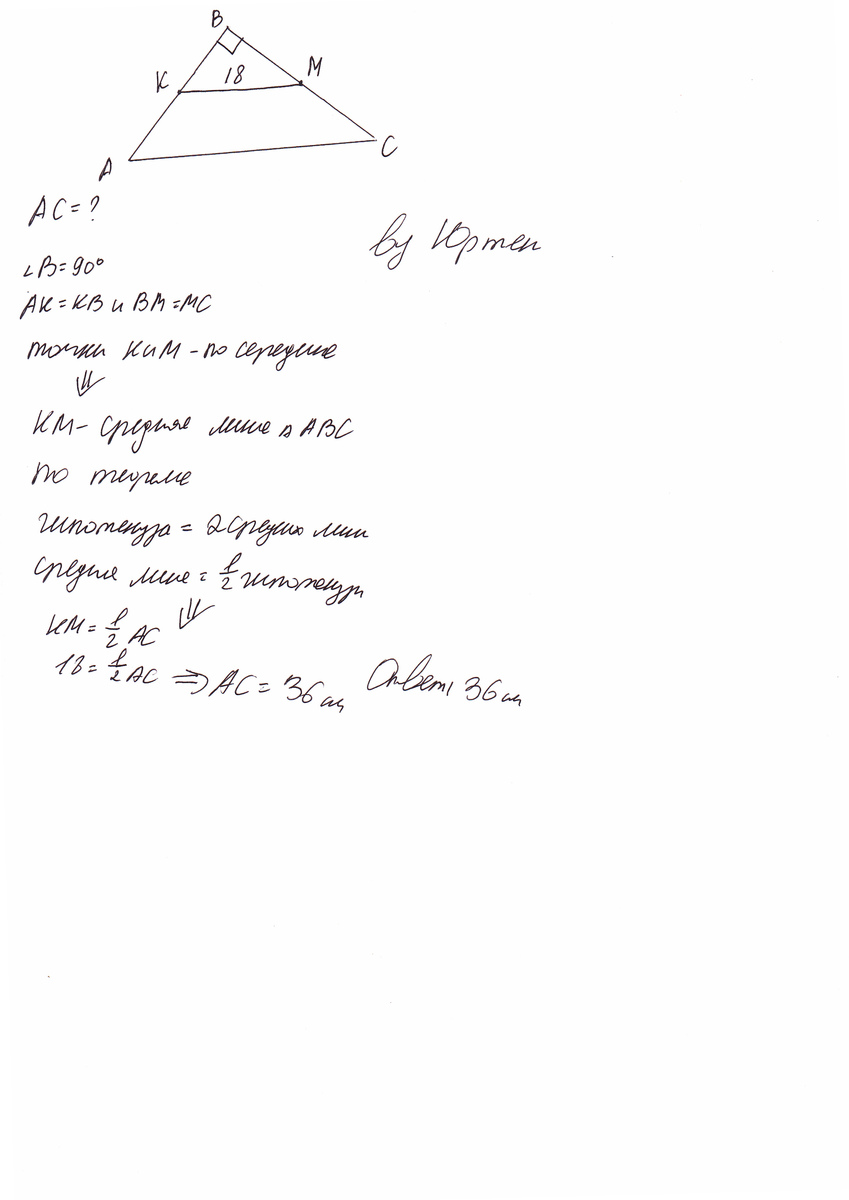 B
K
18
M
A
C
AC = ?
by Юртен
∠B = 90°
AK = KB и BM = MC
точки K и M - по середине
⇓
KM - средняя линия △ ABC
По теореме
гипотенуза = 2 средних лини
средняя линия = 1/2 гипотенузы
⇓
KM = 1/2 AC
18 = 1/2 AC ⇒ AC = 36 см Ответ: 36 см